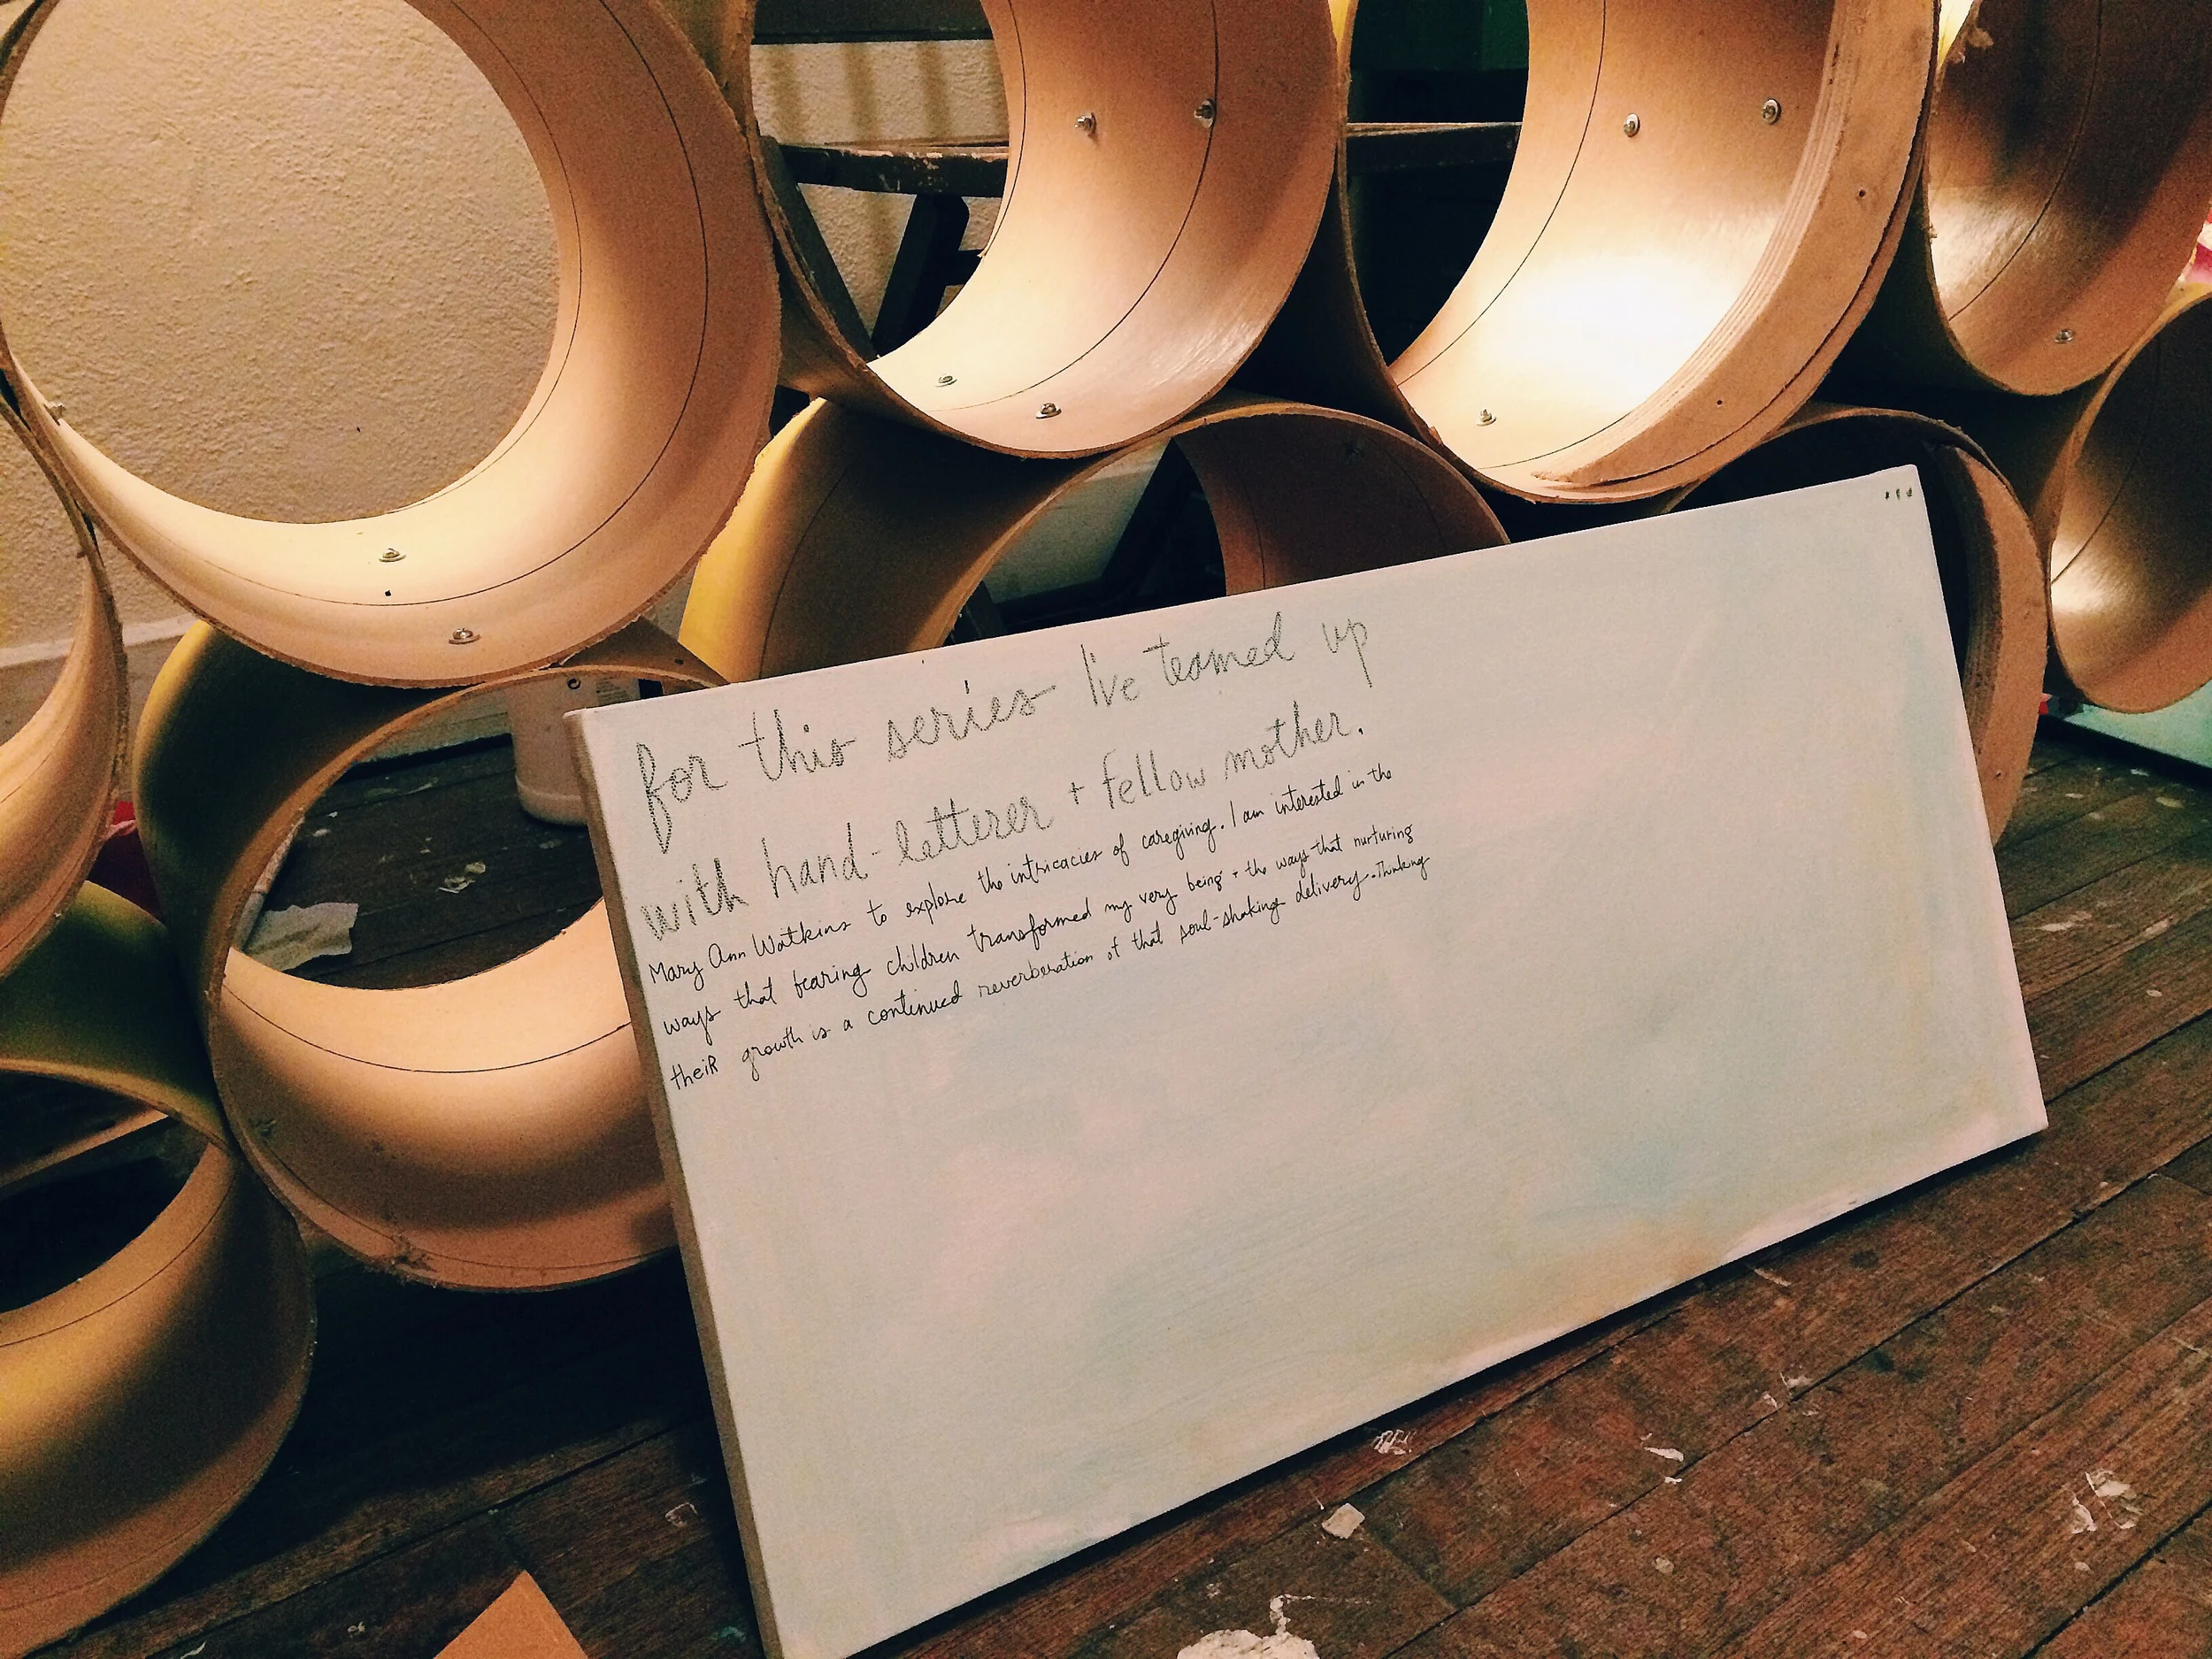 for this series I've teamed up
with hand-letterer + fellow mother.
Mary Ann Watkins to explore the intricacies of caregiving. I am interested in the
ways that bearing children transformed my very being + the ways that nurturing
theiR growth is a continued reverberation of that soul-shaking delivery. Thinking